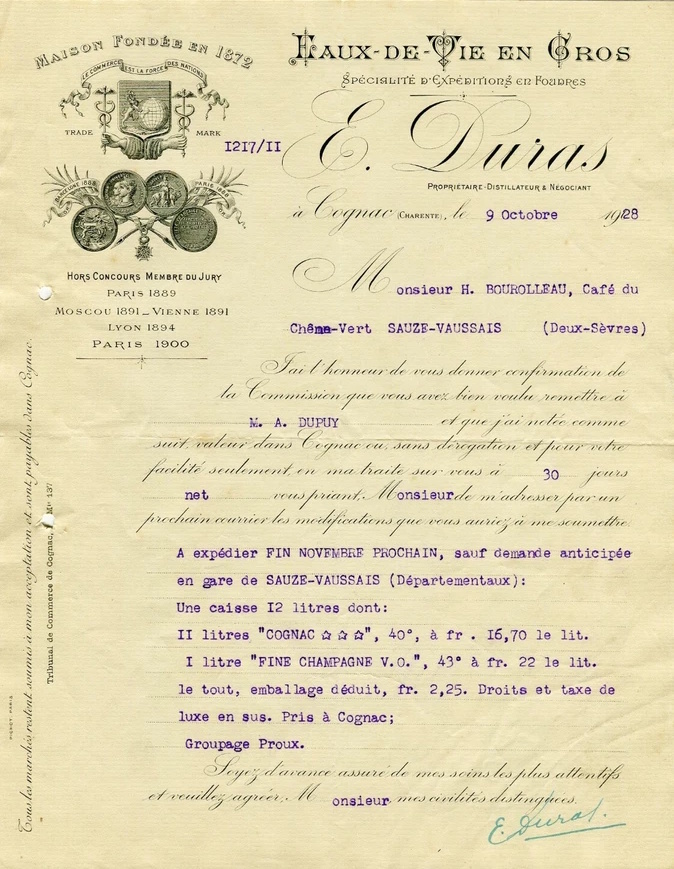 MAISON FONDÉE EN 1872
LE COMMERCE EST LA FORCE DES NATIONS
TRADE MARK
BARCELONE 1888 PARIS 1889
HORS CONCOURS MEMBRE DU JURY
PARIS 1889
MOSCOU 1891_VIENNE 1891
LYON 1894
PARIS 1900
EAUX-DE-VIE EN GROS
SPÉCIALITÉ D'EXPÉDITIONS EN FOUDRES
1217/11
E. Duras
PROPRIÉTAIRE-DISTILLATEUR & NÉGOCIANT
à Cognac (CHARENTE), le 9 Octobre 1928
Monsieur H. BOUROLLEAU, Café du
Chêne-Vert SAUZE-VAUSSAIS (Deux-Sèvres)
J'ai l'honneur de vous donner confirmation de
la Commission que vous avez bien voulu remettre à
M. A. DUPUY et que j'ai notée comme
suit, valeur dans Cognac ou, sans dérogation et pour votre
facilité seulement, en ma traite sur vous à 30 jours
net vous priant, Monsieur de m'adresser par un
prochain courrier les modifications que vous auriez à me soumettre.
A expédier FIN NOVEMBRE PROCHAIN, sauf demande anticipée
en gare de SAUZE-VAUSSAIS (Départementaux):
Une caisse I2 litres dont:
II litres "COGNAC ☆☆☆", 40°, à fr . I6,70 le lit.
I litre "FINE CHAMPAGNE V.O.", 43° à fr. 22 le lit.
le tout, emballage déduit, fr. 2,25. Droits et taxe de
luxe en sus. Pris à Cognac;
Groupage Proux.
Soyez d'avance assuré de mes soins les plus attentifs
et veuillez agréer, Monsieur mes civilités distinguées.
E. Duras.
Tous les marchés restent soumis à mon acceptation et sont payables dans Cognac.
Tribunal de Commerce de Cognac, Nº 137
PICHOT-PARIS